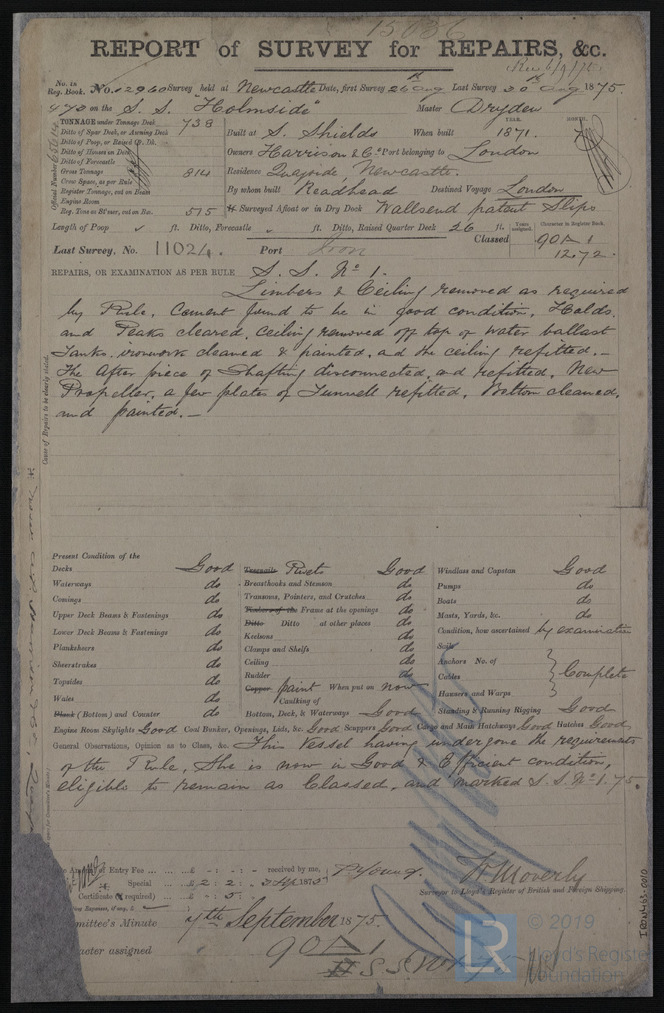 15036
REPORT of SURVEY for REPAIRS, &c.
No. in Reg. Book. No. 12960 Survey held at Newcastle Date, first Survey 26th Aug Last Survey 30th Aug 1875.
473 on the S. S. "Holmside" Master Dryden
TONNAGE under Tonnage Deck 738
Ditto of Spar Deck, or Awning Deck
Ditto of Poop, or Raised Qr. Dk.
Ditto of Houses on Deck
Ditto of Forecastle
Gross Tonnage 814
Crew Space, as per Rule
Register Tonnage, cut on Beam
Engine Room
Reg. Tons as St'mer, cut on Bm. 515
Official Number
Built at S. Shields When built YEAR. 1871. MONTH. 7
Owners Harrison & Co. Port belonging to London
Residence Quayside, Newcastle.
By whom built Readhead Destined Voyage London
Surveyed Afloat or in Dry Dock Wallsend patent Slips
Length of Poop ft. Ditto, Forecastle ft. Ditto, Raised Quarter Deck 26 ft.
Classed Years assigned. Character in Register Book. 90 A 1 12.72.
Last Survey, No. 11024. Port Iron
REPAIRS, OR EXAMINATION AS PER RULE S. S. No 1.
Limbers & Ceiling removed as required
by Rule, Cement found to be in good condition, Holds
and Peaks cleared, ceiling removed off top of water ballast
Tanks, ironwork cleaned & painted, and the ceiling refitted. —
The After piece of Shafting disconnected, and refitted, New
Propeller, a few plates of Tunnell refitted, Bottom cleaned,
and painted. —
Cause of Repairs to be clearly stated.
Present Condition of the
Decks Good
Waterways do
Comings do
Upper Deck Beams & Fastenings do
Lower Deck Beams & Fastenings do
Planksheers do
Sheerstrakes do
Topsides do
Wales do
Plank (Bottom) and Counter do
Treenails Rivets Good
Breasthooks and Stemson do
Transoms, Pointers, and Crutches do
Timbers of the Frame at the openings do
Ditto Ditto at other places do
Keelsons do
Clamps and Shelfs do
Ceiling do
Rudder do
Copper paint When put on now
Caulking of
Bottom, Deck, & Waterways Good
Windlass and Capstan Good
Pumps do
Boats do
Masts, Yards, &c. do
Condition, how ascertained by examination
Sails
Anchors No. of
Cables Complete
Hawsers and Warps
Standing & Running Rigging Good
Engine Room Skylights Good Coal Bunker, Openings, Lids, &c. Good Scuppers Good Cargo and Main Hatchways Good Hatches Good
General Observations, Opinion as to Class, &c. This Vessel having undergone the requirements
of the Rule, She is now in Good & Efficient condition,
eligible to remain as Classed, and marked S. S. No 1. 75.
Amount of Entry Fee ... £ - : - : - received by me,
Special ... £ 2 : 2 : - 1875
Certificate (if required) : - 5 : -
W Moverly
Surveyor to Lloyd's Register of British and Foreign Shipping.
Committee's Minute 7th September 1875
Character assigned 90 A 1
IRON463-0010
LR © 2019
Lloyd's Register
Foundation